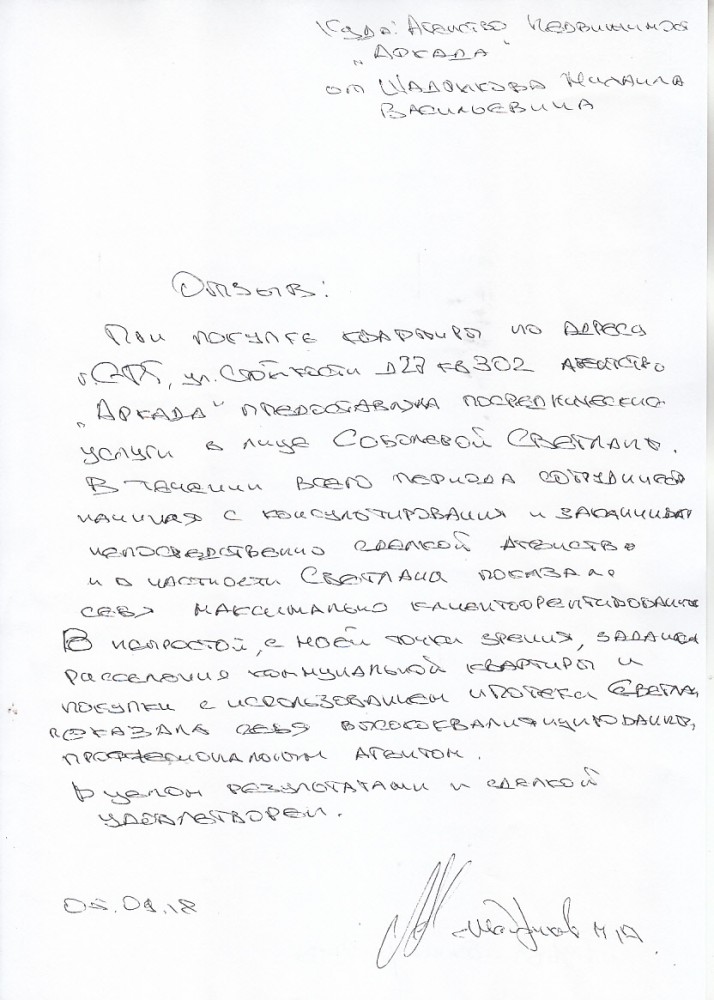 Куда: Агенство Недвижимос
„Аркада"
от Шадчикова Михаила
Васильевича
Отзыв:
При покупке квартиры по адресу
г. СПб, ул. Стойкости д 27 кв 302 агентство
„Аркада" предоставила посреднические
услуги в лице Соболевой Светланы.
В течении всего периода сотрудничес
начиная с консультирования и заканчивая
непосредственно сделкой агенство
и в частности Светлана показало
себя максимально клиентоорентированно
В непростой, с моей точки зрения, задачи
расселения коммунальной квартиры и
покупки с использованием ипотеки Светла
показала себя высококвалифицированным,
профессиональным агентом.
В целом результатами и сделкой
удовлетворен.
05.09.18